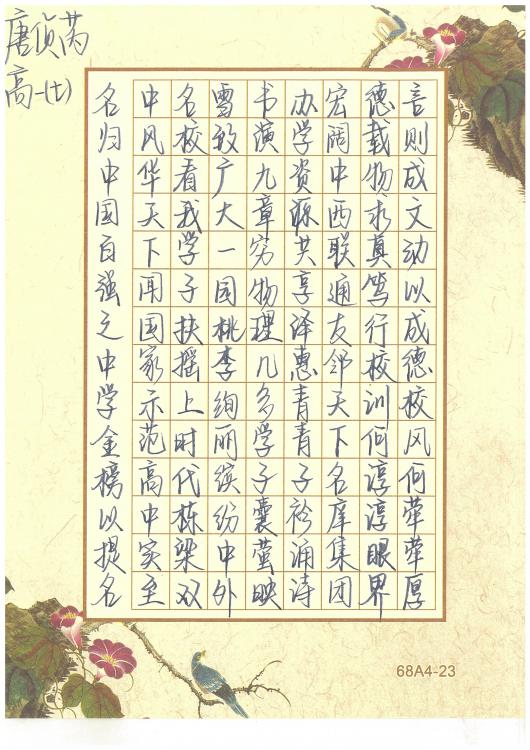 唐侦芮
高一(七)
言则成文动以成德校风何荦荦厚
德载物求真笃行校训何淳淳眼界
宏阔中西联通友邻天下名庠集团
办学资源共享泽惠青青子衿涌诗
书演九章穷物理几多学子囊萤映
雪致广大一园桃李绚丽缤纷中外
名校看我学子扶摇上时代栋梁双
中风华天下闻国家示范高中实至
名归中国百强之中学金榜以提名
68A4-23